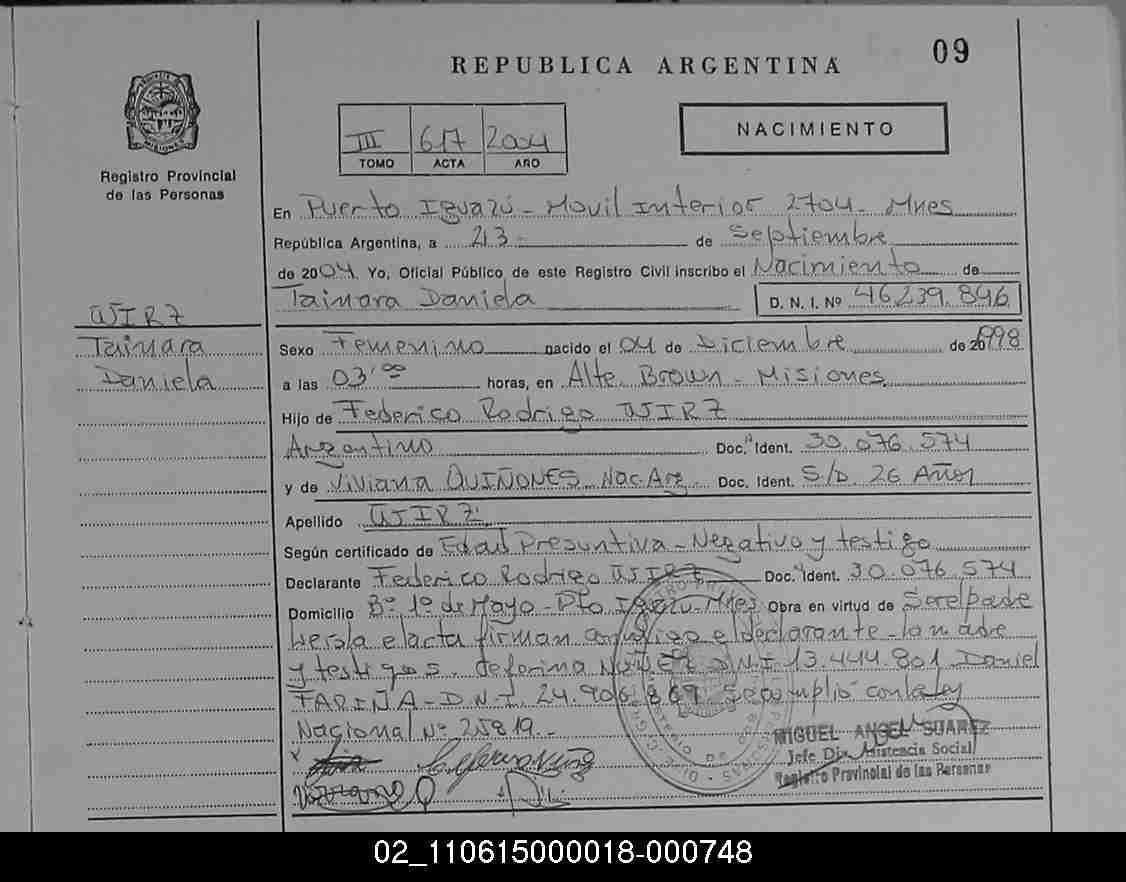 09
REPUBLICA ARGENTINA
NACIMIENTO
III 617 2004
TOMO ACTA AÑO
Registro Provincial
de las Personas
En Puerto Iguazú - Movil Interior 2704 - Mnes
República Argentina, a 23 - de Septiembre
de 2004. Yo, Oficial Público de este Registro Civil inscribo el Nacimiento de
Tainara Daniela D. N. I. Nº 46.239.846
WIRZ
Tainara
Daniela
Sexo Femenino nacido el 04 de Diciembre de 1998
a las 03:00 horas, en Alte. Brown - Misiones
Hijo de Federico Rodrigo WIRZ
Argentino Doc. Ident. 30.076.574
y de Viviana QUIÑONES Nac. Arg Doc. Ident. S/D. 26 Años
Apellido WIRZ
Según certificado de Edad Presuntiva - Negativo y testigo
Declarante Federico Rodrigo WIRZ Doc. Ident. 30.076.574
Domicilio Bº 1º de Mayo - Pto Iguazu - Mnes Obra en virtud de Ser el padre
Leida el acta firman conmigo el declarante - la madre
y testigos. Ceferina NUÑEZ D.N.I. 13.444.801 Daniel
FARIÑA - D.N.I. 24.906.869 Se cumplió con la Ley
Nacional Nº 25819.-
MIGUEL ANGEL SUAREZ
Jefe Div. Asistencia Social
Registro Provincial de las Personas
02_110615000018-000748